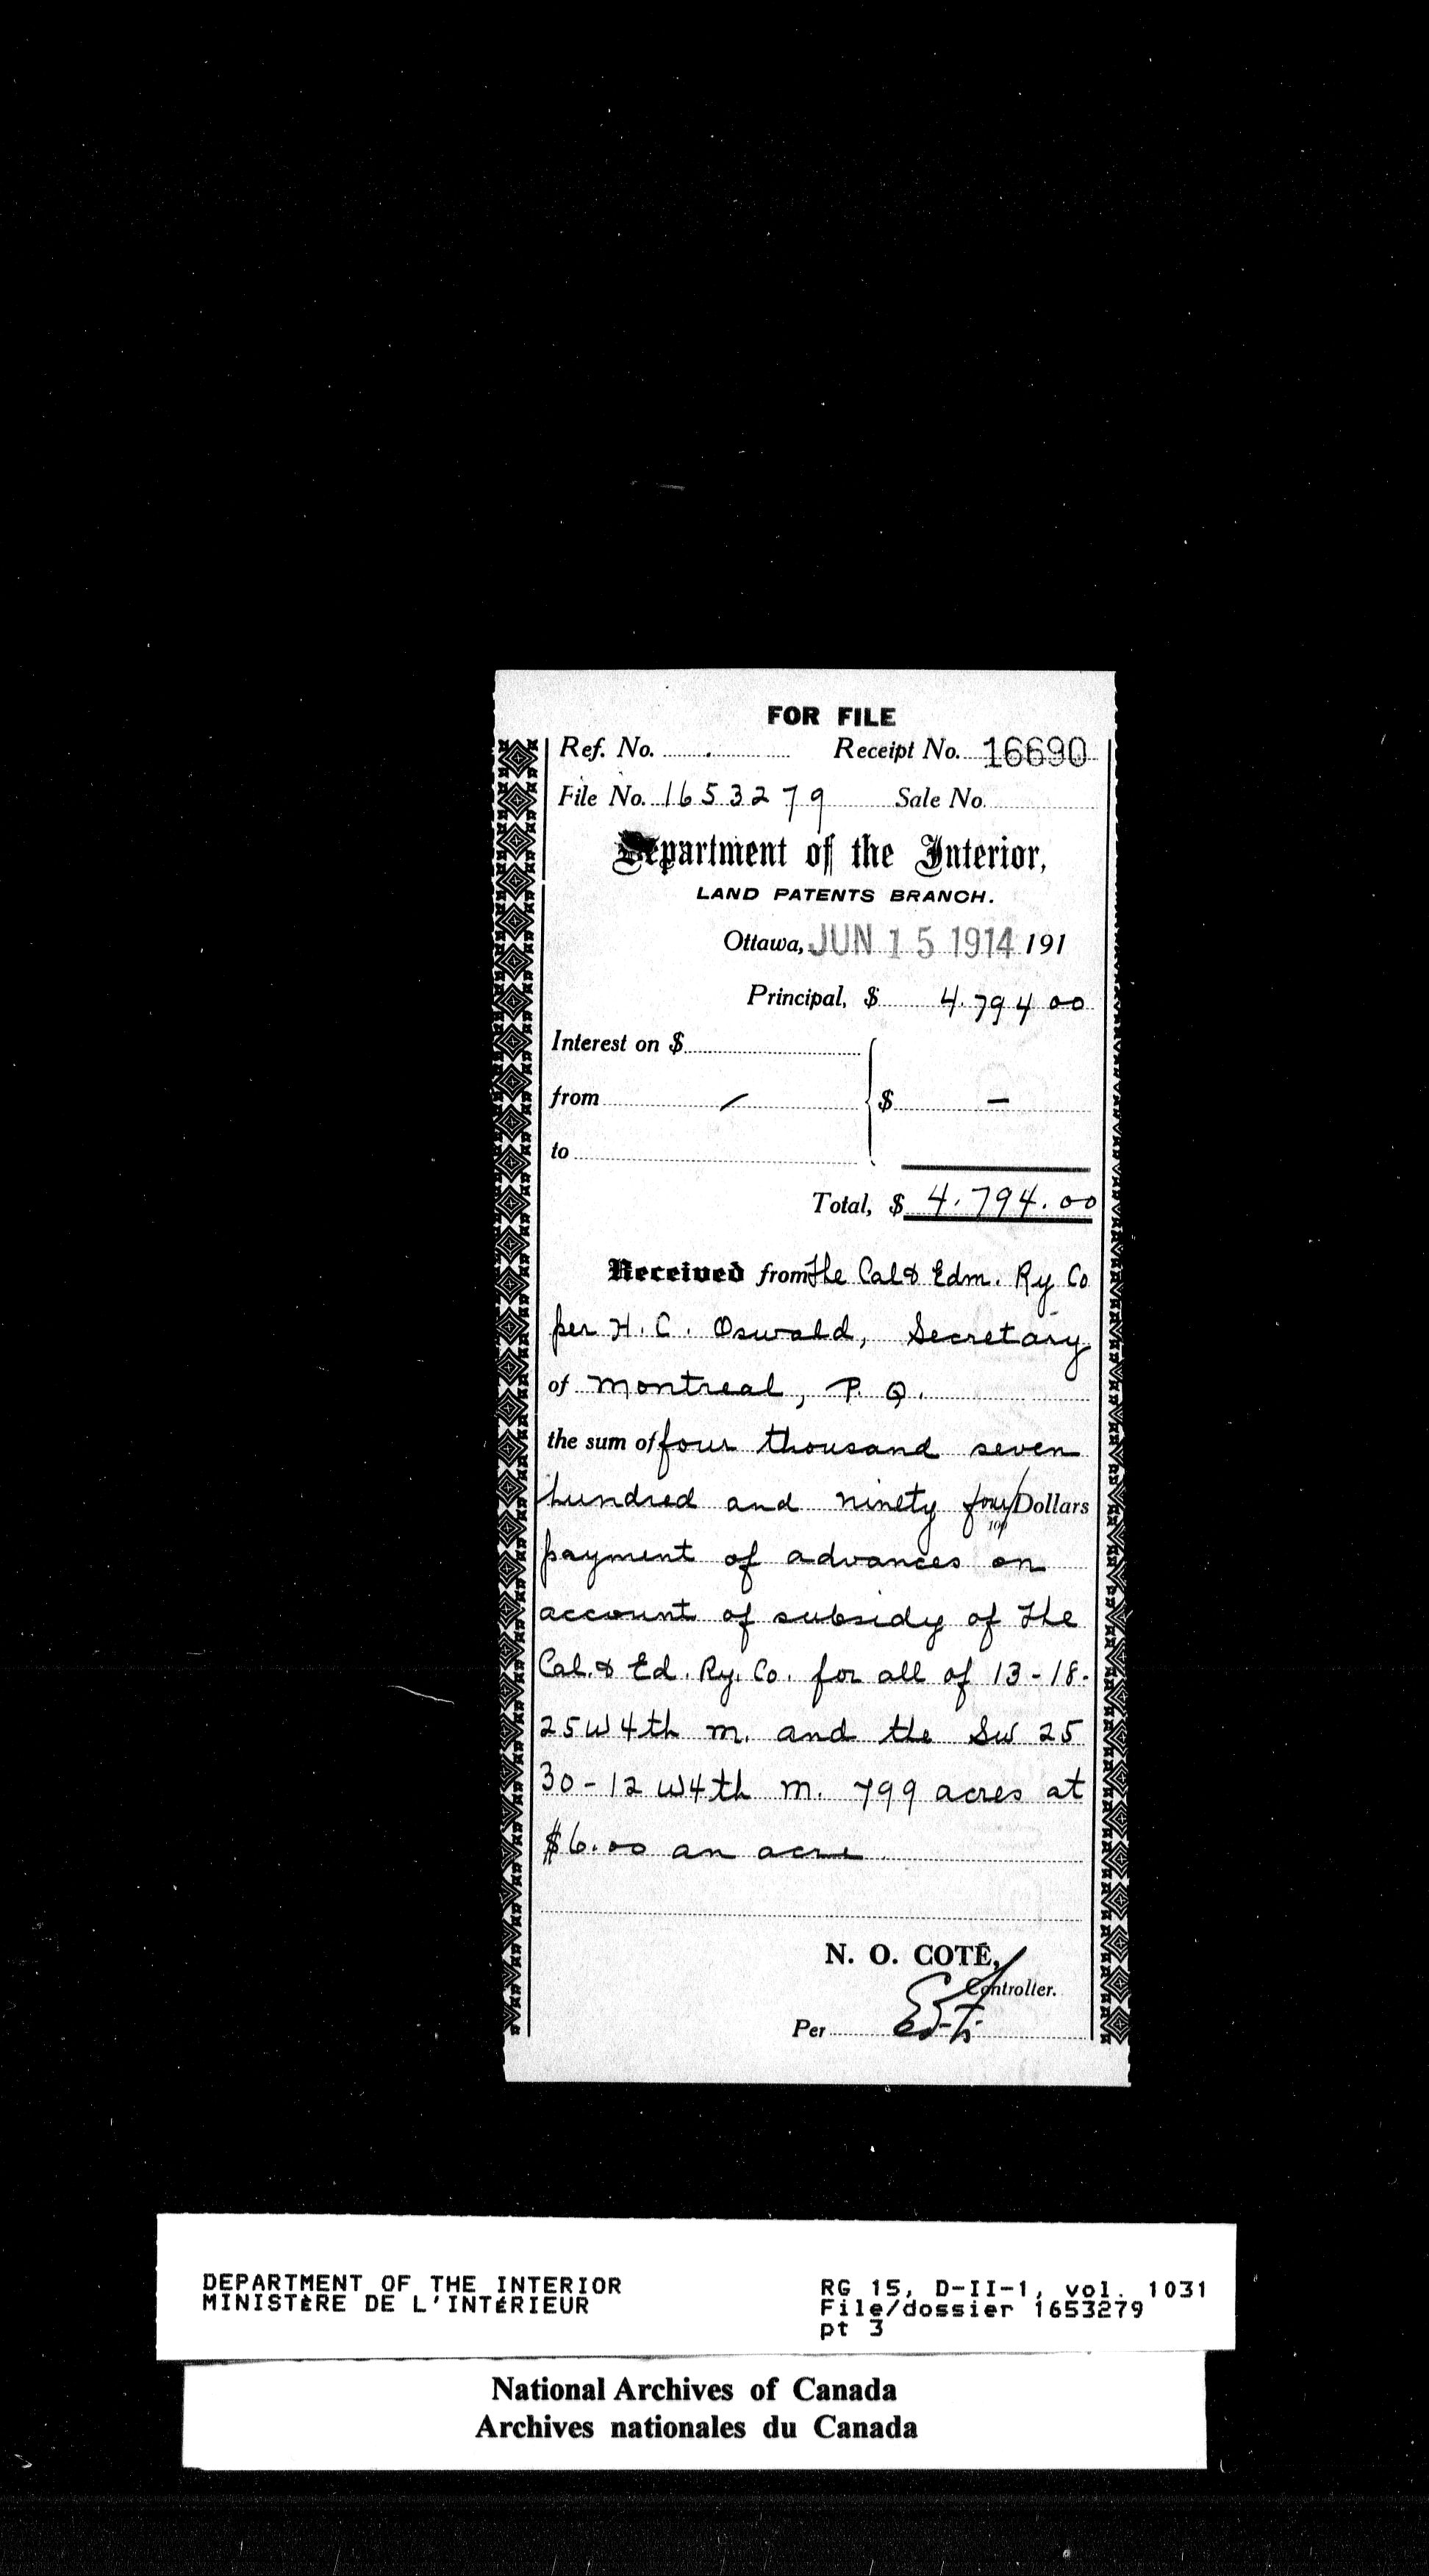 FOR FILE
Ref. No. . Receipt No. 16690
File No. 1653279 Sale No.
Department of the Interior,
LAND PATENTS BRANCH.
Ottawa, JUN 15 1914 191
Principal, $ 4.794 00
Interest on $
from — $ —
to
Total, $ 4.794.00
Received from The Cal & Edm. Ry Co
per H. C. Oswald, Secretary
of Montreal, P. Q.
the sum of four thousand seven
hundred and ninety four/100 Dollars
payment of advances on
account of subsidy of The
Cal. & Ed. Ry. Co. for all of 13-18-
25 W 4th M. and the SW 25
30-12 W4th M. 799 acres at
$6.00 an acre.
N. O. COTÉ,
Controller.
Per
DEPARTMENT OF THE INTERIOR RG 15, D-II-1, vol. 1031
MINISTÈRE DE L'INTÉRIEUR File/dossier 1653279
pt 3
National Archives of Canada
Archives nationales du Canada